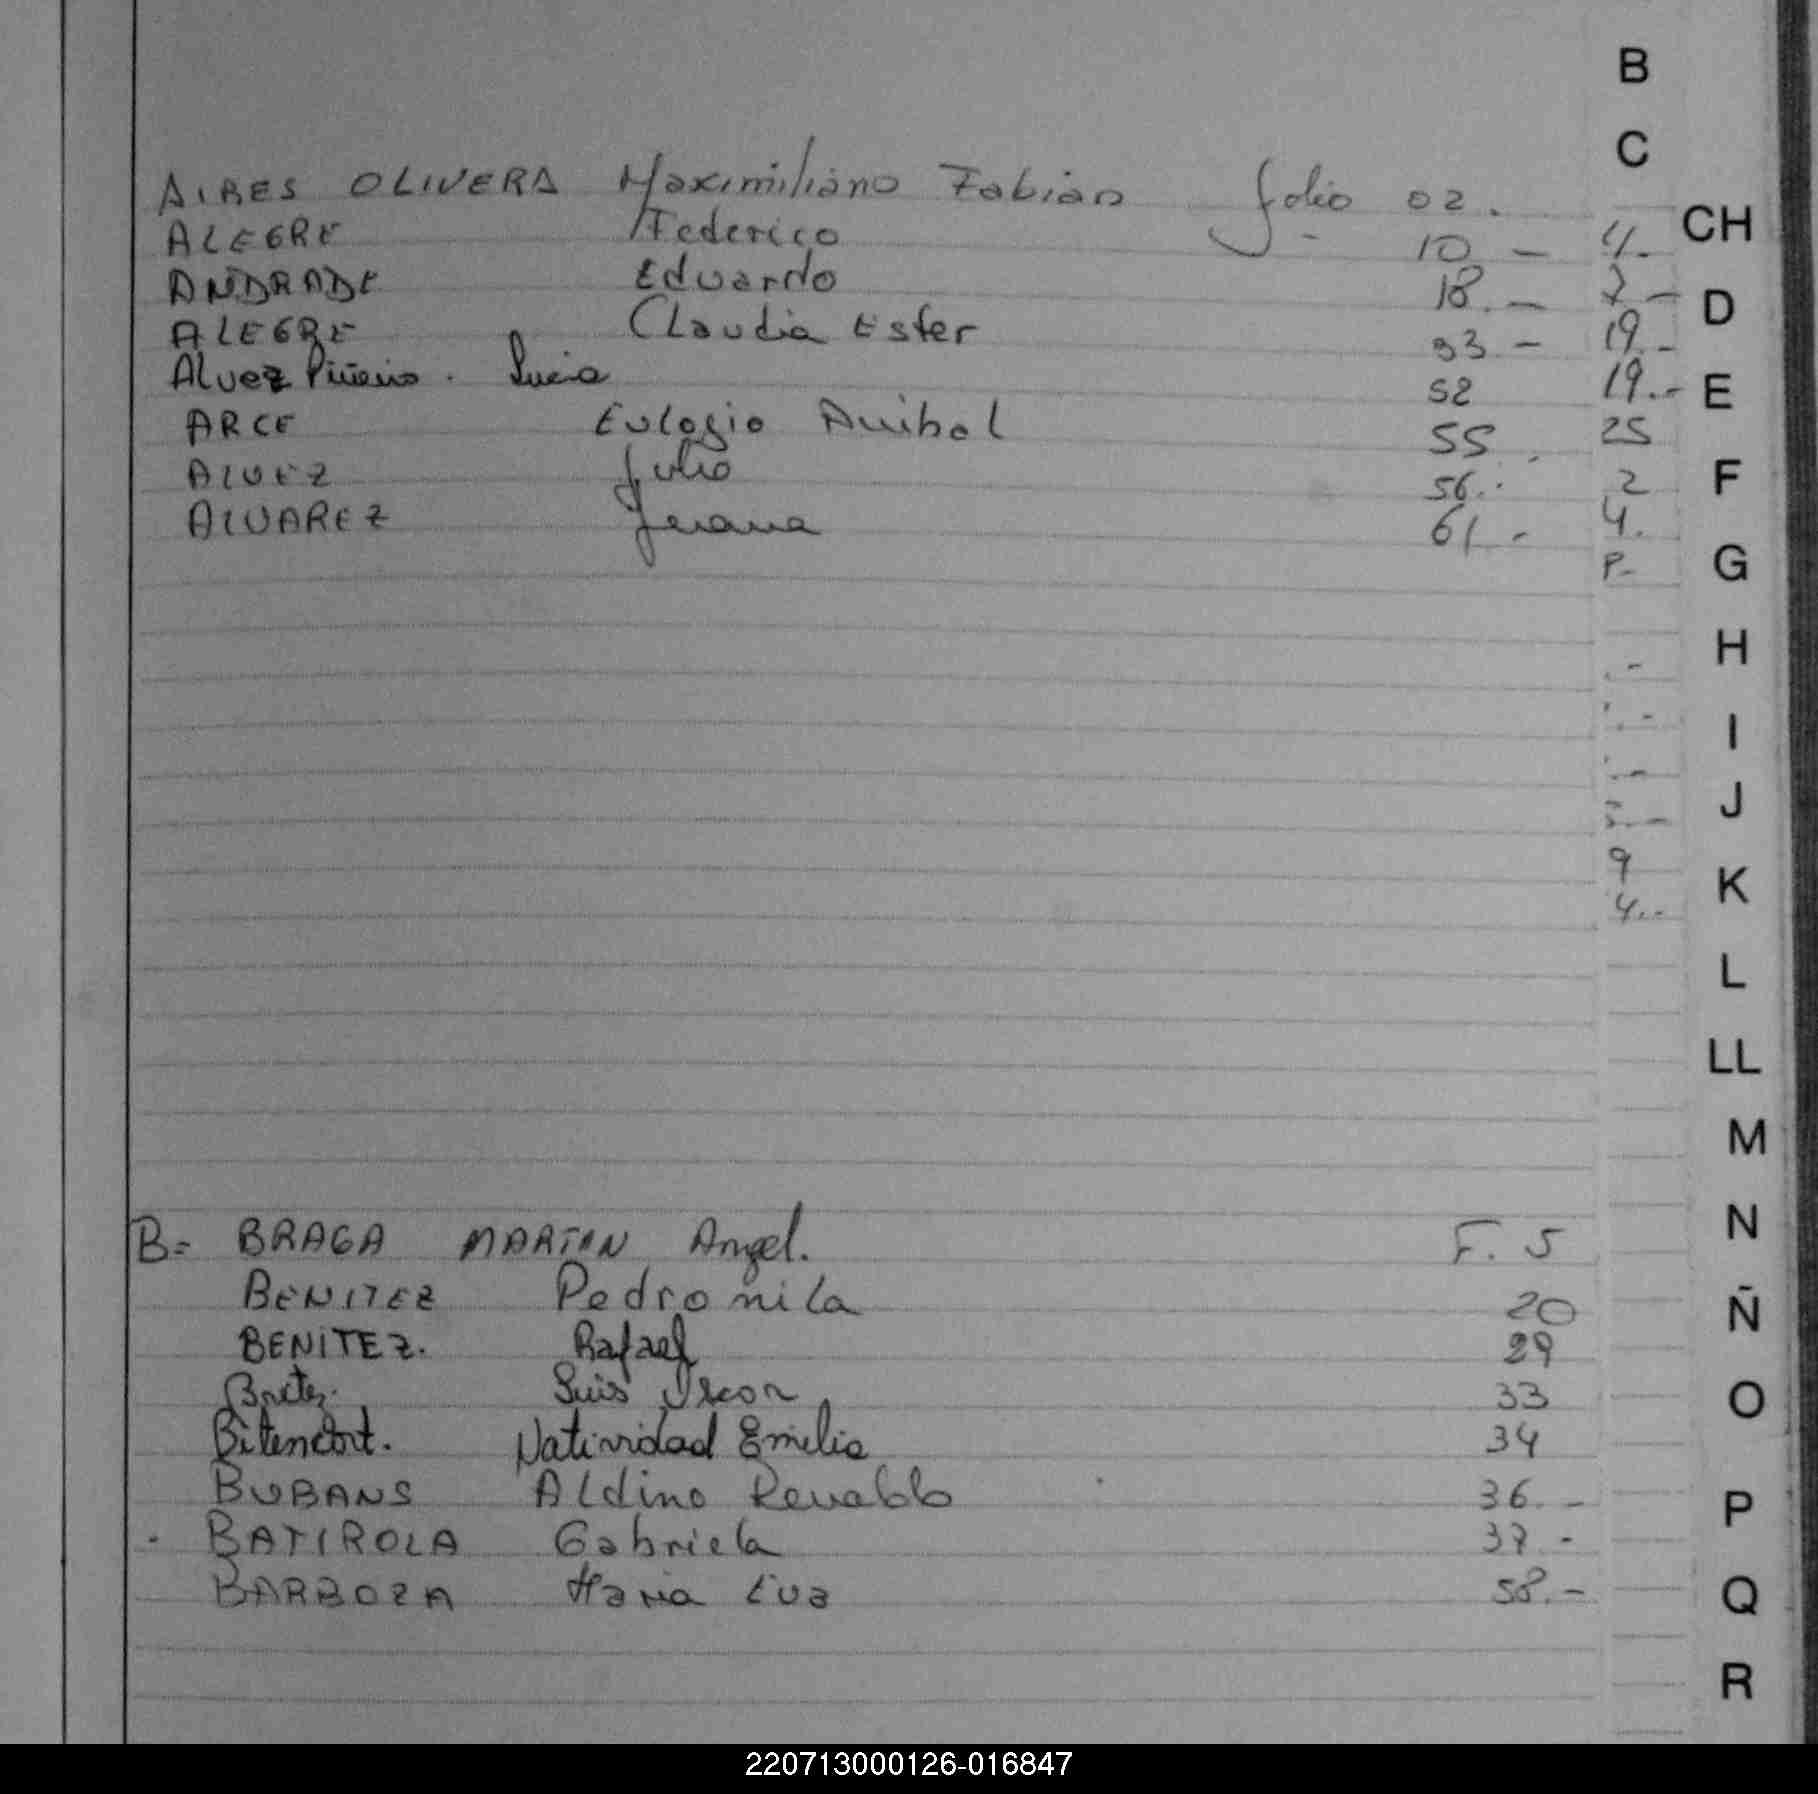 B
C
CH
D
E
F
G
H
I
J
K
L
LL
M
N
Ñ
O
P
Q
R
AIRES OLIVERA Maximiliano Fabian folio 02.
ALEGRE Federico 10 - 4.-
ANDRADE Eduardo 18.- 7.-
ALEGRE Claudia Ester 33 - 19.-
Alvez Piñeiro. Lucia 52 19.-
ARCE Eulogio Anibal 55. 25
ALVEZ Julio 56.. 2
ALVAREZ 61.- 4.
9
4..
B= BRAGA MARTIN Angel. F. 5
BENITEZ Pedronila 20
BENITEZ. Rafael 29
Luis Oscar 33
Bitencort. Natividad Emilia 34
BUBANS Aldino Renaldo 36.-
BATIROLA Gabriela 37.-
BARBOZA Maria Eva 58.-
220713000126-016847